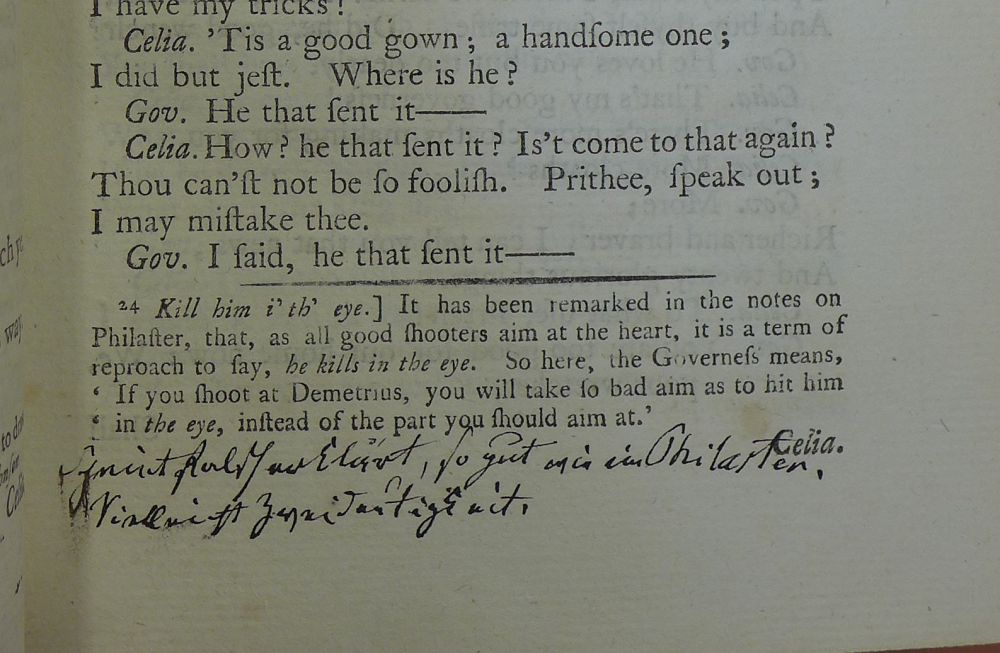 I have my tricks!
Celia. 'Tis a good gown; a handſome one;
I did but jeſt. Where is he?
Gov. He that ſent it——
Celia. How? he that ſent it? Is't come to that again?
Thou can'ſt not be ſo fooliſh. Prithee, ſpeak out;
I may miſtake thee.
Gov. I ſaid, he that ſent it——
24 Kill him i' th' eye.] It has been remarked in the notes on
Philaſter, that, as all good ſhooters aim at the heart, it is a term of
reproach to ſay, he kills in the eye. So here, the Governeſs means,
‘ If you ſhoot at Demetrius, you will take ſo bad aim as to hit him
‘ in the eye, inſtead of the part you ſhould aim at.’
Celia.
falsch erklärt, so gut wie im Philaster.
Vielleicht Zweideutigkeit.